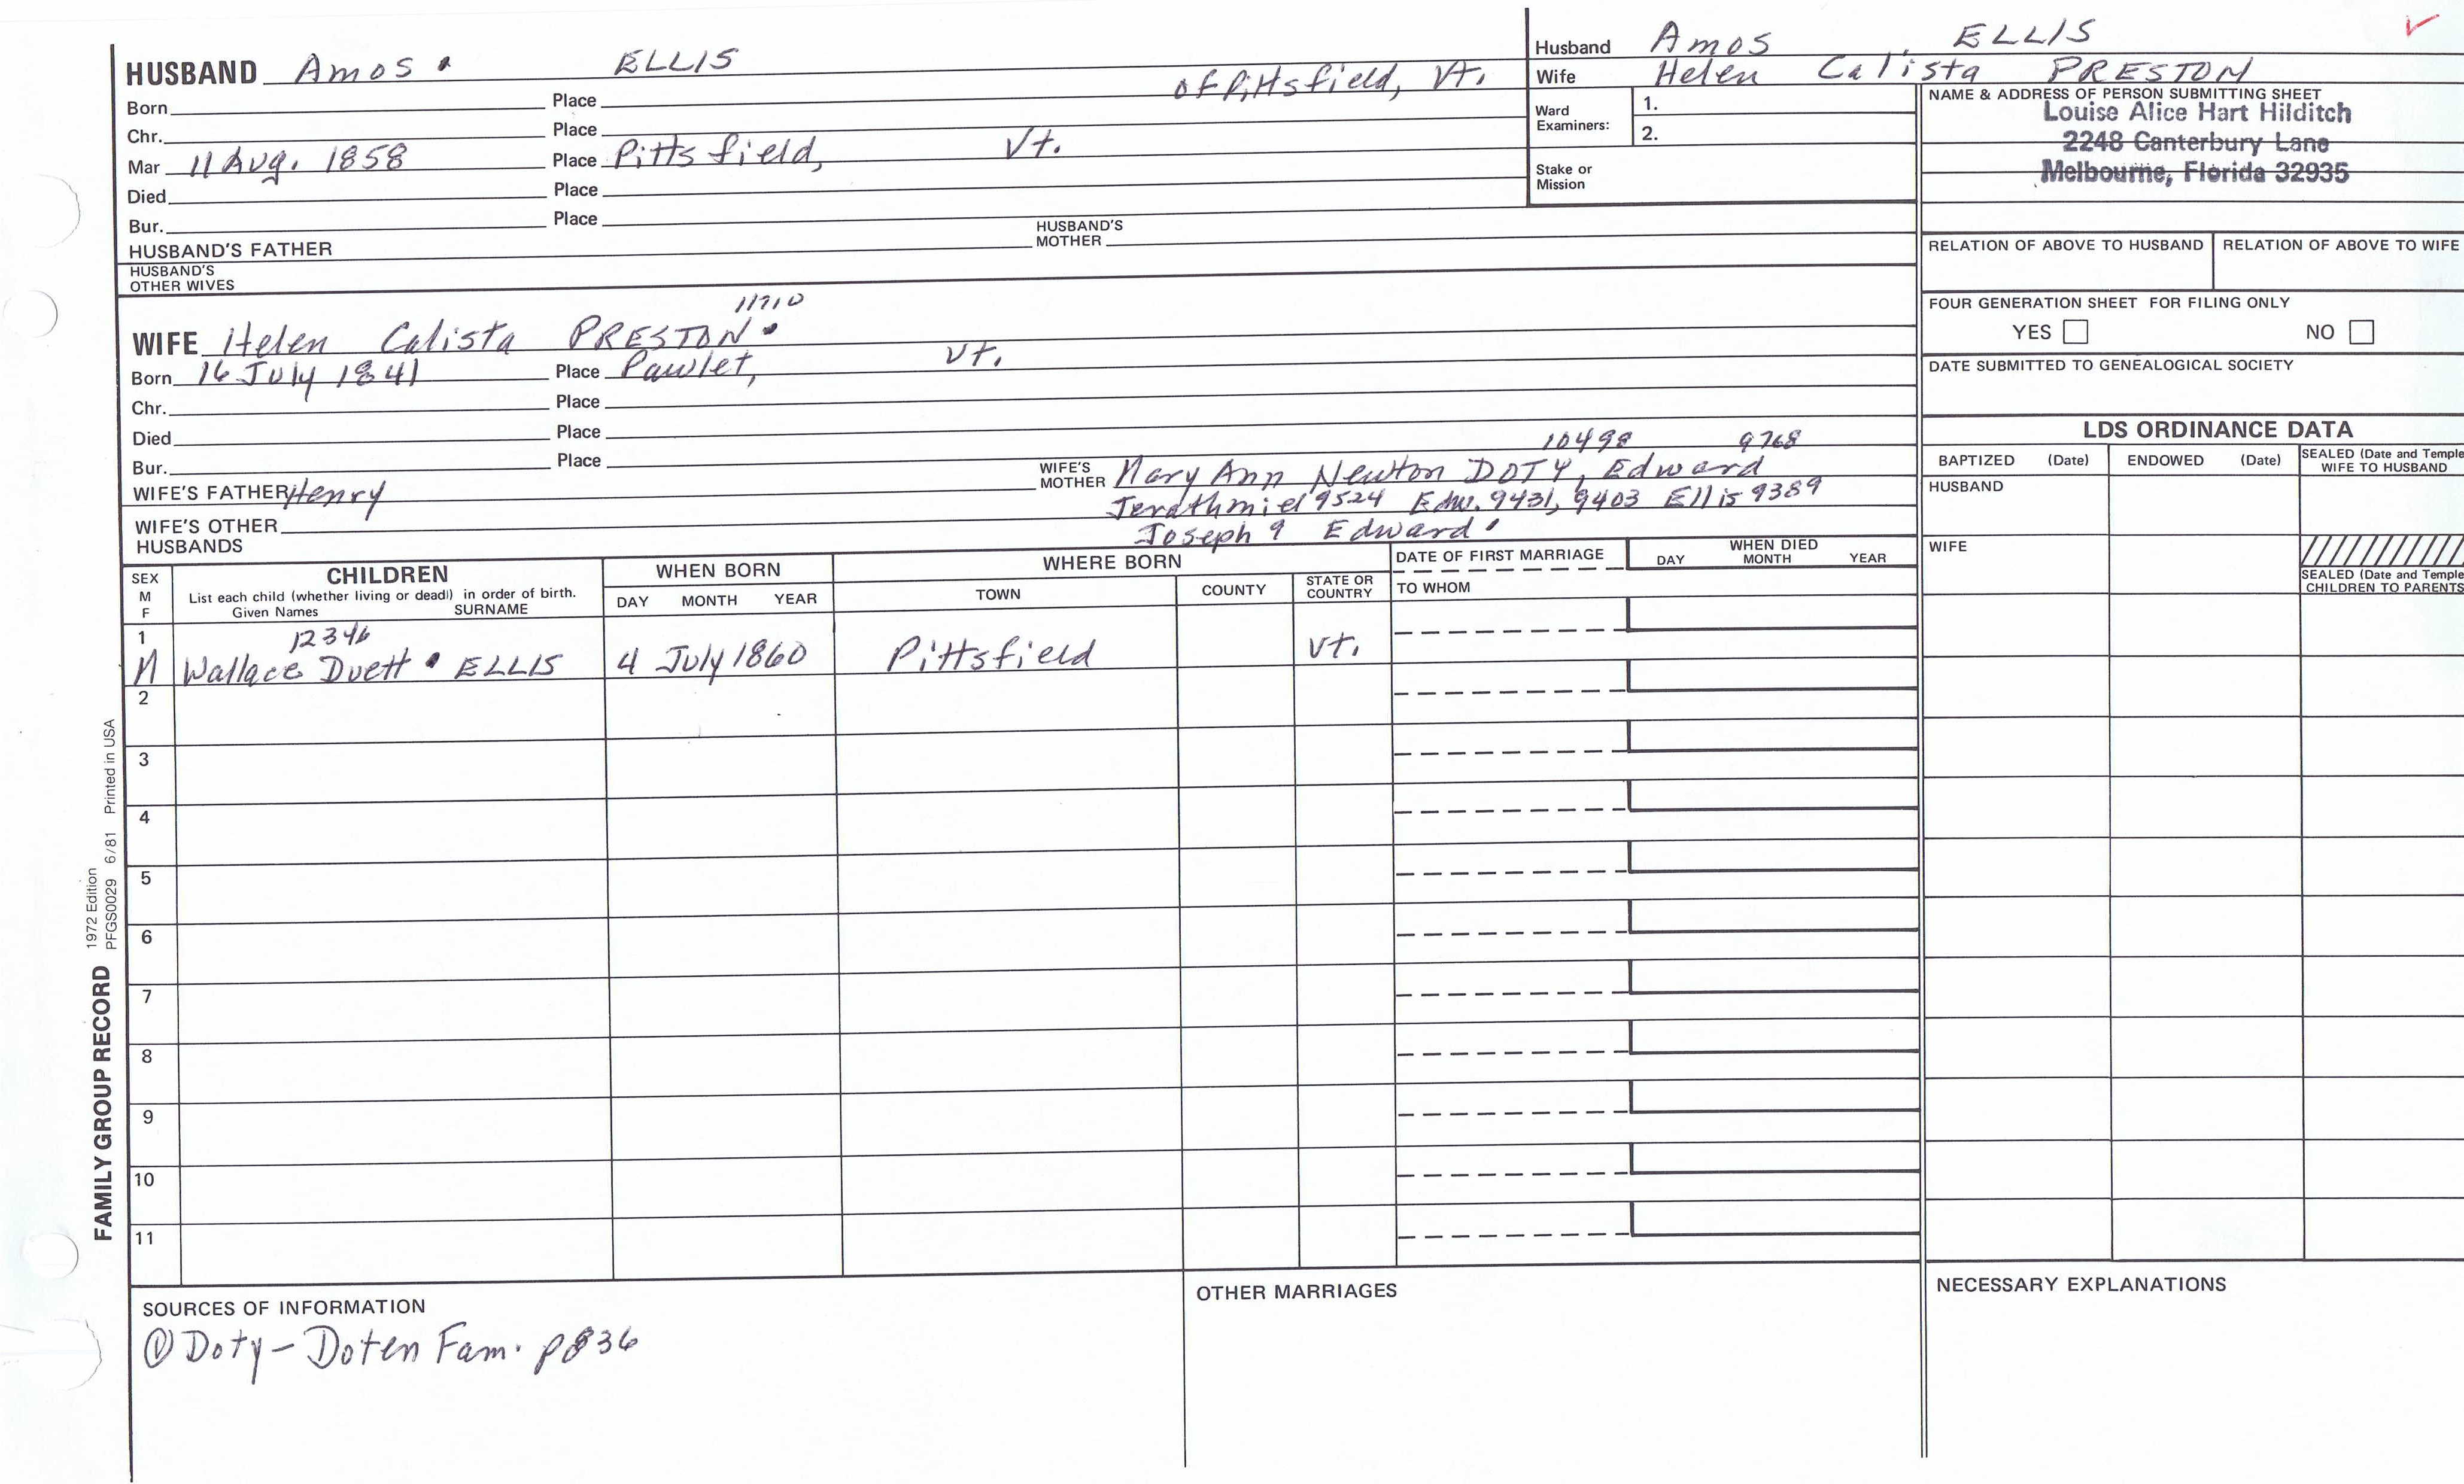 HUSBAND Amos ELLIS
of Pittsfield, Vt.
Born Place
Chr. Place
Mar 11 Aug. 1858 Place Pittsfield, Vt.
Died Place
Bur. Place
HUSBAND'S FATHER HUSBAND'S MOTHER
HUSBAND'S OTHER WIVES
Husband Amos ELLIS
Wife Helen Calista PRESTON
Ward Examiners: 1.
2.
Stake or Mission
NAME & ADDRESS OF PERSON SUBMITTING SHEET
Louise Alice Hart Hilditch
2248 Canterbury Lane
Melbourne, Florida 32935
RELATION OF ABOVE TO HUSBAND RELATION OF ABOVE TO WIFE
FOUR GENERATION SHEET FOR FILING ONLY
YES NO
DATE SUBMITTED TO GENEALOGICAL SOCIETY
11710
WIFE Helen Calista PRESTON
Born 16 July 1841 Place Pawlet, Vt.
Chr. Place
Died Place
Bur. Place
10498 9768
WIFE'S FATHER Henry WIFE'S MOTHER Mary Ann Newton DOTY, Edward
Jerathmiel 9524 Edw. 9431, 9403 Ellis 9389
WIFE'S OTHER HUSBANDS
Joseph 9 Edward
LDS ORDINANCE DATA
BAPTIZED (Date) ENDOWED (Date) SEALED (Date and Temple WIFE TO HUSBAND
HUSBAND
WIFE
SEALED (Date and Temple CHILDREN TO PARENTS
SEX M F
CHILDREN
List each child (whether living or dead) in order of birth.
Given Names SURNAME
WHEN BORN
DAY MONTH YEAR
WHERE BORN
TOWN COUNTY STATE OR COUNTRY
DATE OF FIRST MARRIAGE
TO WHOM
WHEN DIED
DAY MONTH YEAR
1 12346
M Wallace Duett ELLIS 4 July 1860 Pittsfield Vt.
2
3
4
5
6
7
8
9
10
11
SOURCES OF INFORMATION
① Doty-Doten Fam. p836
OTHER MARRIAGES
NECESSARY EXPLANATIONS
FAMILY GROUP RECORD 1972 Edition
PFGS0029 6/81 Printed in USA